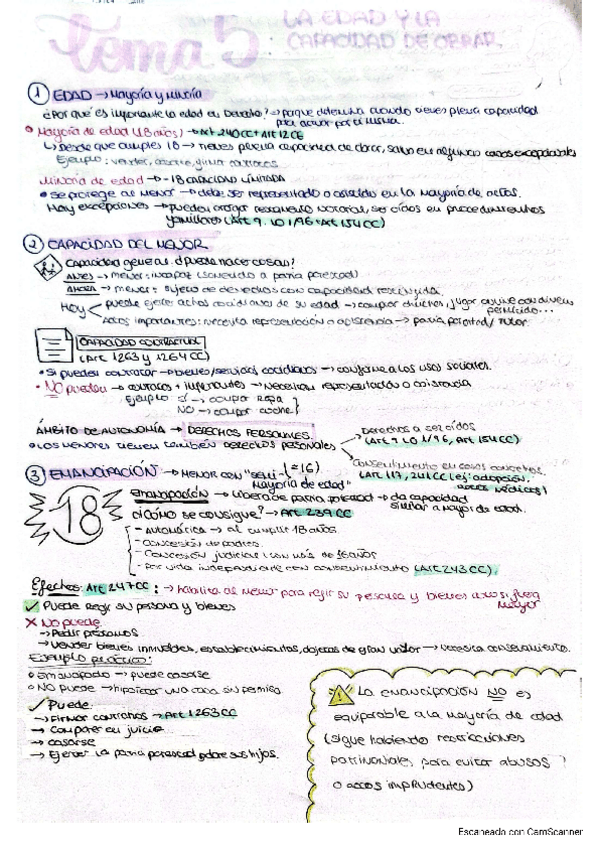 Tema 5: LA EDAD Y LA
CAPACIDAD DE OBRAR.
1 EDAD → Mayoría y minoría
¿Por qué es importante la edad en Derecho? → porque determina cuando tienes plena capacidad
para actuar por ti misma.
Mayoría de edad (18 años) → Art 240 CC + Art 12 CE
↳ Desde que cumples 18 → tienes plena capacidad de obrar, salvo en algunos casos excepcionales
Ejemplo: vender, firmar contratos
Minoría de edad → -18 CAPACIDAD LIMITADA
• Se protege al MENOR → debe ser representado o asistido en la mayoría de actos.
Hay excepciones → pueden otorgar testamento notarial, ser oídos en procedimientos
familiares (Art 9. LO 1/96 + Art 154 CC)
2 CAPACIDAD DEL MENOR
Capacidad general: ¿puede hacer cosas?
ANTES → menor: incapaz (sometido a patria potestad)
AHORA → menor: sujeto de derechos con capacidad restringida.
Hoy < puede ejercer actos cotidianos de su edad → comprar chuches, jugar online con dinero
permitido...
Actos importantes: necesita representación o asistencia → patria potestad/ tutor
CAPACIDAD CONTRACTUAL
(Art 1263 y 1264 CC)
• Si pueden contratar → bienes/servicios cotidianos → conforme a los usos sociales.
• NO pueden → contratos + importantes → Necesitan representación o asistencia
Ejemplo sí → comprar ropa
NO → comprar coche
ÁMBITO DE AUTONOMÍA → DERECHOS PERSONALES.
• Los menores tienen también derechos personales
Derecho a ser oídos
(Art 9 LO 1/96, Art 154 CC)
Consentimiento en casos concretos.
(Art 177, 241 CC (ej: adopción,
actos médicos)
3 EMANCIPACIÓN → MENOR CON "semi- (= 16)
Mayoría de edad"
18
Emancipación → libera de patria potestad → da capacidad
similar a mayor de edad.
¿Cómo se consigue? → Art 239 CC
- Automática → al cumplir 18 años.
- Concesión de padres.
- Concesión judicial (con más de 16 años
- Por vida independiente con consentimiento (Art 243 CC).
Efectos: Art 247 CC: → habilita al menor para regir su persona y bienes como si fuera
mayor
✓ Puede regir su persona y bienes
✗ No puede
→ Pedir préstamos
→ Vender bienes inmuebles, establecimientos, objetos de gran valor → necesita consentimiento.
Ejemplo práctico:
• Emancipado → puede casarse
• NO puede → hipotecar una casa sin permiso
✓ Puede:
→ Firmar contratos → Art 1263 CC
→ Comparecer en juicio
→ casarse
→ Ejercer la patria potestad sobre sus hijos.
La emancipación NO es
equiparable a la mayoría de edad
(sigue habiendo restricciones
patrimoniales para evitar abusos
o actos imprudentes)
Escaneado con CamScanner